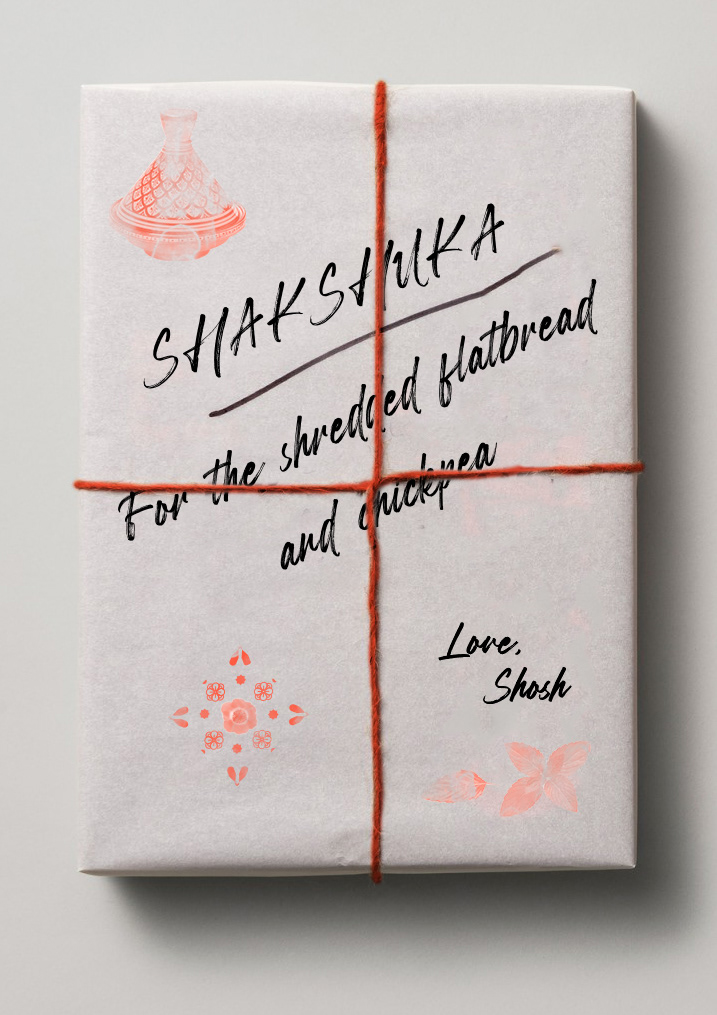 SHAKSHUKA
For the shredded flatbread
and chickpea
Love,
Shosh